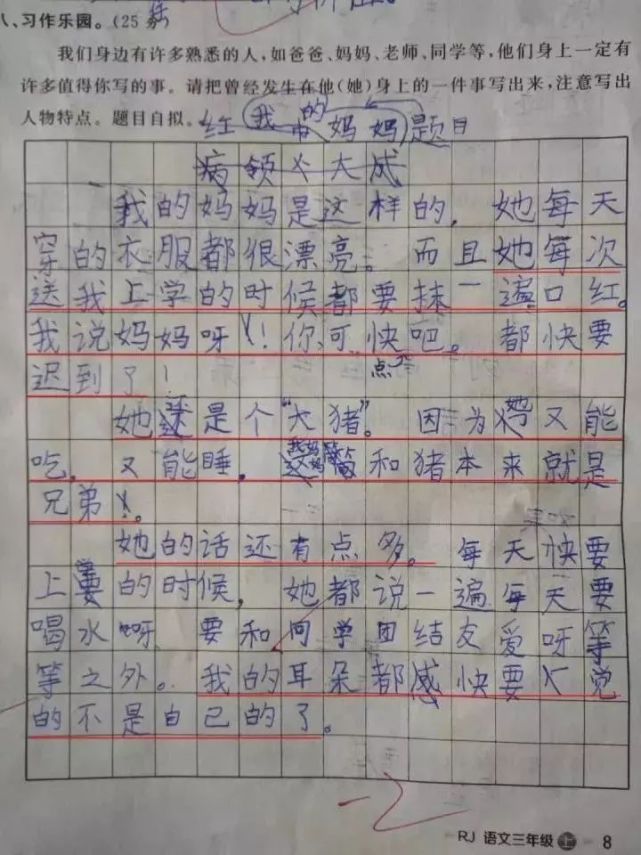 八、习作乐园。(25分)
我们身边有许多熟悉的人,如爸爸、妈妈、老师、同学等,他们身上一定有
许多值得你写的事。请把曾经发生在他(她)身上的一件事写出来,注意写出
人物特点。题目自拟。
红 我的妈妈 题目
病领 大成
我的妈妈是这样的,她每天
穿的衣服都很漂亮。而且她每次
送我上学的时候都要抹一遍口红。
我说妈妈呀!你可快点吧。都快要
迟到了!
她是个“大猪”。因为她又能
吃,又能睡,我妈妈 和猪本来就是
兄弟。
她的话还有点多。每天快要
上学的时候,她都说一遍每天要
喝水呀 要和同学团结友爱呀等
等之外。我的耳朵都感快要 觉
的不是自己的了。
RJ 语文三年级上 8